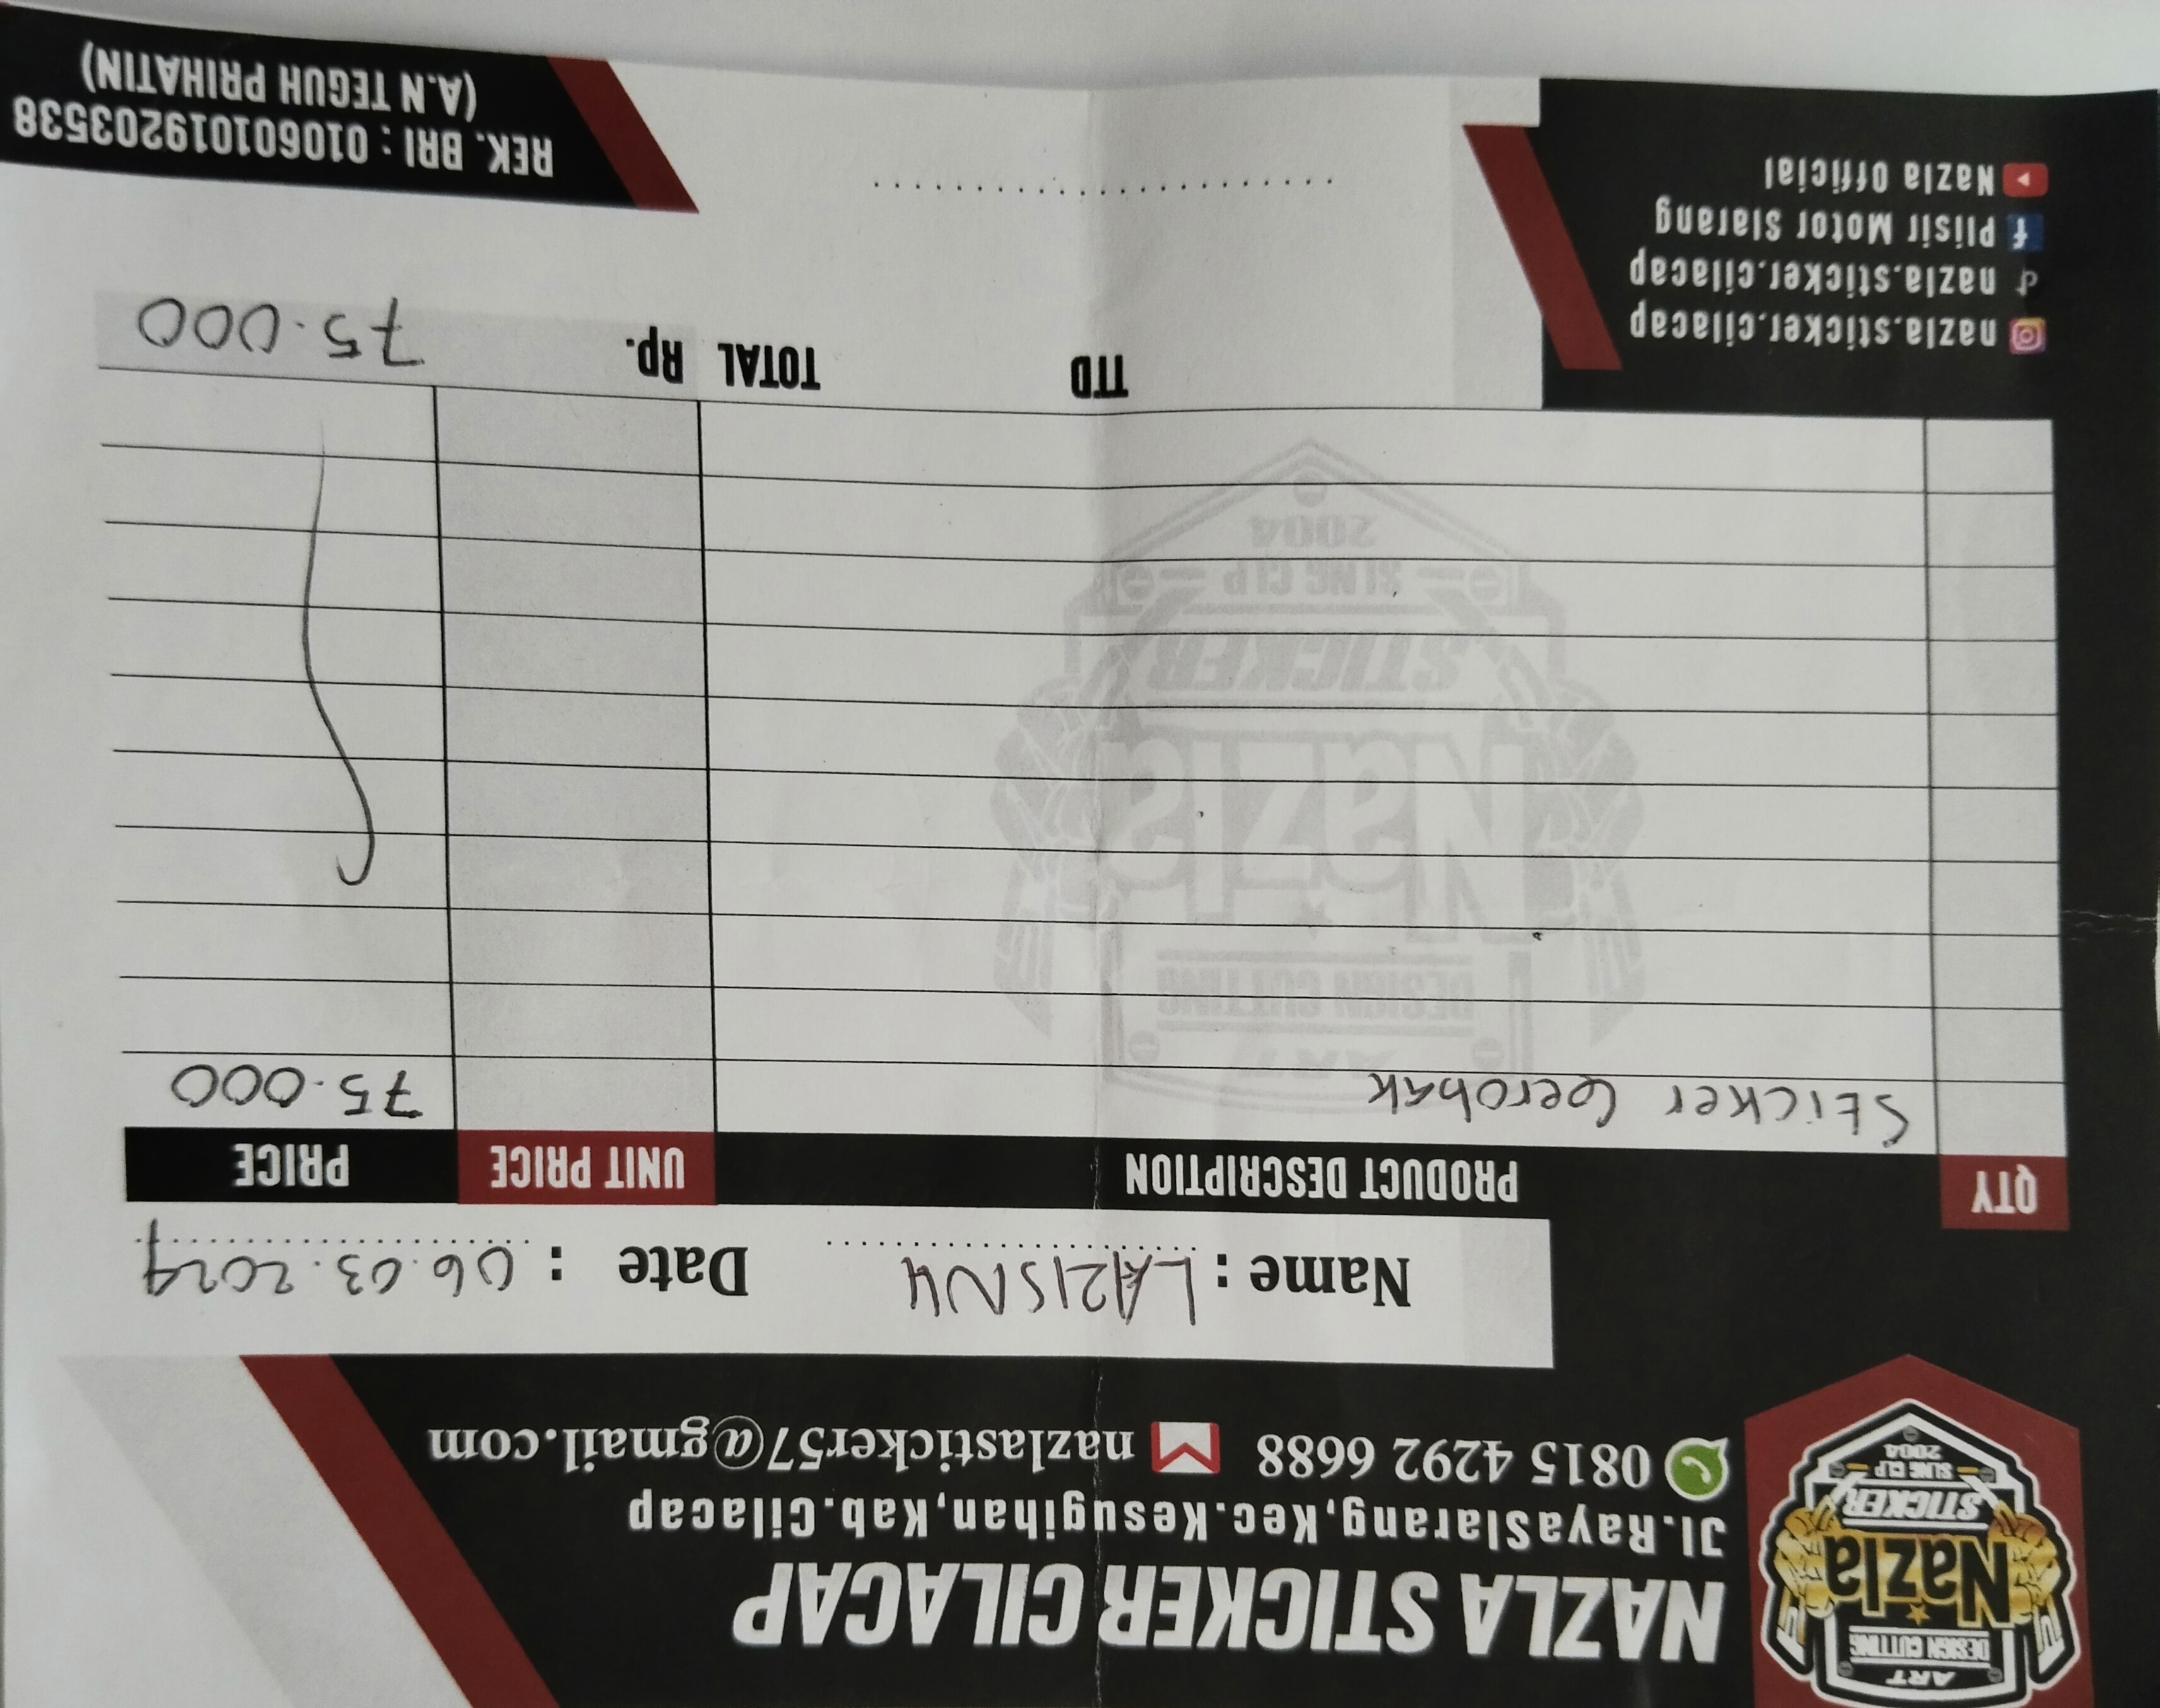 ART
DESIGN CUTTING
Nazla
STICKER
SLNG CLP
2004
NAZLA STICKER CILACAP
Jl.RayaSlarang,Kec.Kesugihan,Kab.Cilacap
0815 4292 6688 nazlasticker57@gmail.com
Name : LAZISNU Date : 06.03.2024
QTY PRODUCT DESCRIPTION UNIT PRICE PRICE
Sticker Gerobak 75.000
ART
DESIGN CUTTING
Nazla
STICKER
SLNG CLP
2004
TTD TOTAL Rp. 75.000
nazla.sticker.cilacap
nazla.sticker.cilacap
Plisir Motor Slarang
Nazla Official
REK. BRI : 010601019203538
(A.N TEGUH PRIHATIN)